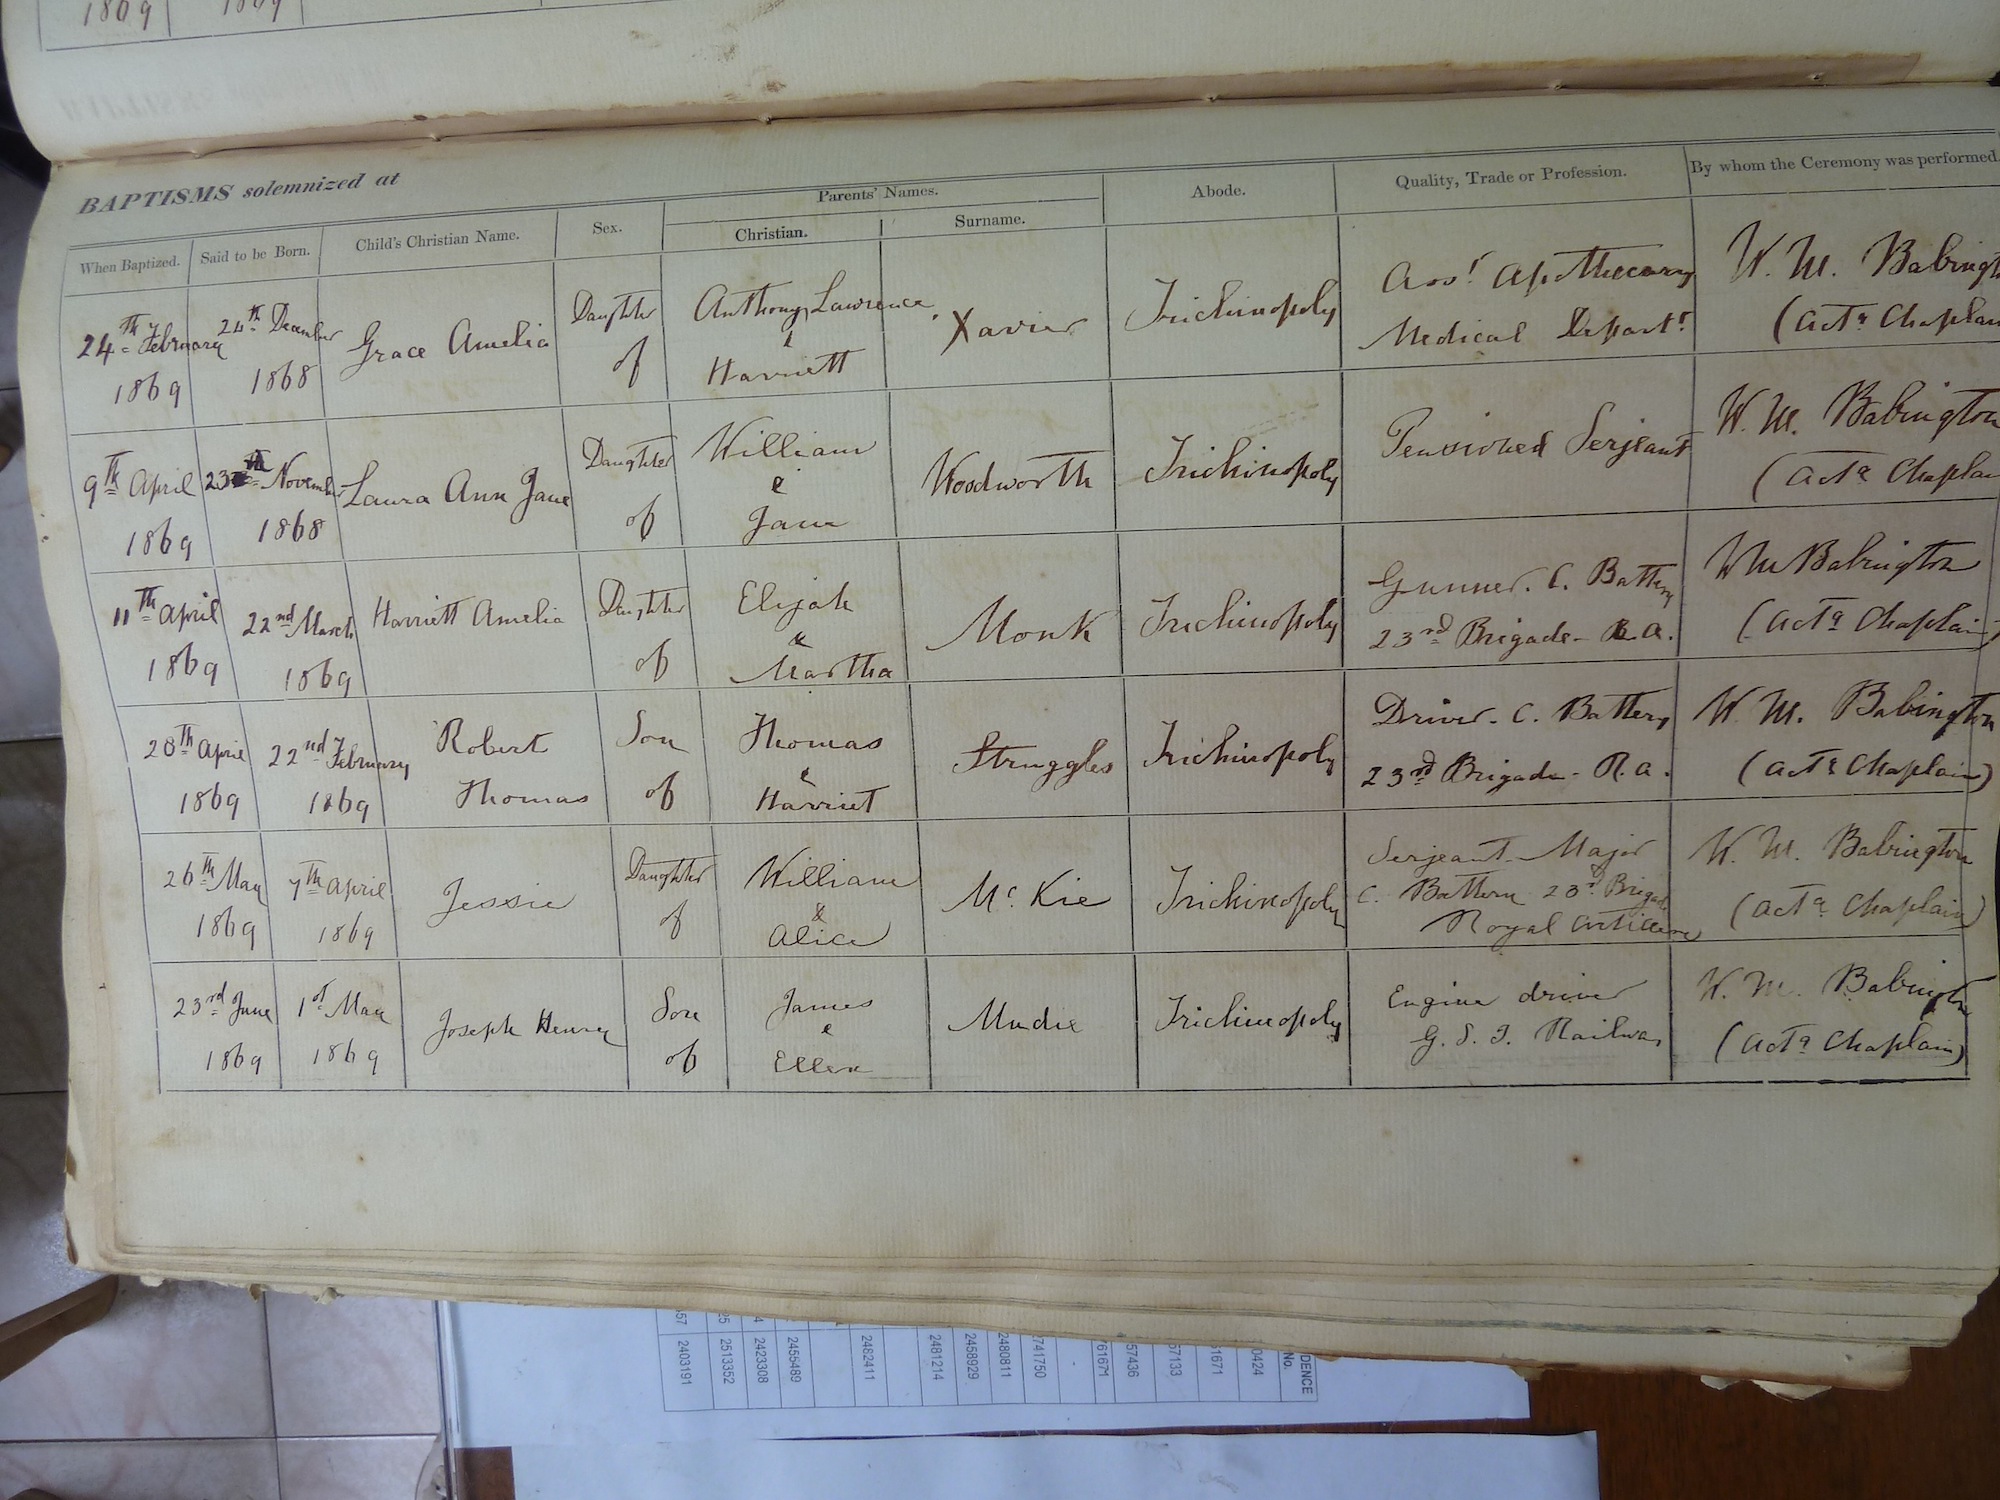 1869 1869
BAPTISMS solemnized at
When Baptized. Said to be Born. Child's Christian Name. Sex. Parents' Names. Christian. Surname. Abode. Quality, Trade or Profession. By whom the Ceremony was performed.
24th February 24th December Grace Amelia Daughter Anthony Lawrence Xavier Trichinopoly Asst Apothecary W. M. Babingt
1869 1868 of & Harriett Medical Departt (Actg Chaplain
9th April 23 November Laura Ann Jane Daughter William Woodworth Trichinopoly Pensioned Serjeant W. M. Babington
1869 1868 of & Jane (Actg Chaplai
11th April 22nd March Harriett Amelia Daughter Elijah Monk Trichinopoly Gunner. C. Battery W M Babington
1869 1869 of & Martha 23rd Brigade - R. A. (Actg Chaplain)
28th April 22nd February Robert Son Thomas Struggles Trichinopoly Driver. C. Battery W. M. Babington
1869 1869 Thomas of & Harriet 23rd Brigade - R. A. (Actg Chaplain)
26th May 7th April Jessie Daughter William Mc. Kie Trichinopoly Serjeant Major W. M. Babington
1869 1869 of & Alice C. Battery 23rd Brigade (Actg Chaplain)
Royal Artillery
23rd June 1st May Joseph Henry Son James Mudie Trichinopoly Engine driver W. M. Babington
1869 1869 of & Ellen G. S. I. Railway (Actg Chaplain)
DENCE
No.
0424
1671
57133
57436
761671
741750
2480811
2458929
2481214
2482411
2455489
2423308
2513352
2403191